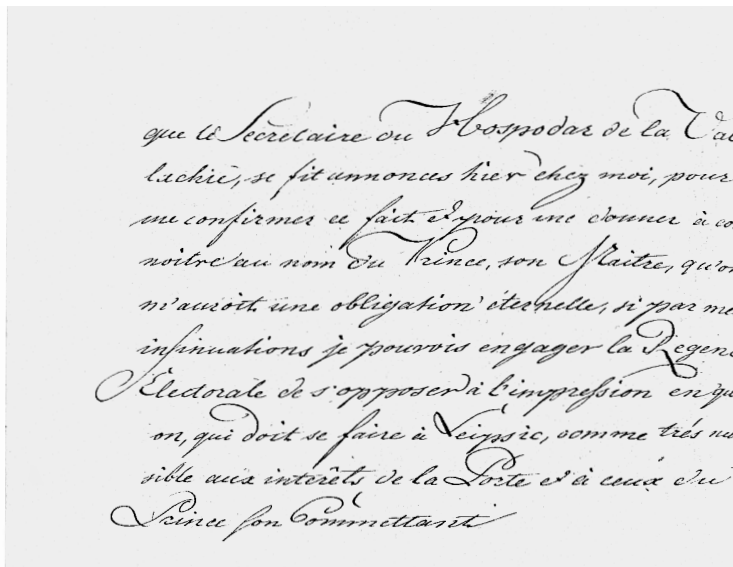 que le Sécrétaire du Hospodar de la Va
lachie, se fit annoncer hier chez moi, pour
me confirmer ce fait et pour me donner à co
noitre au nom du Prince, son Maitre, qu'on
m'auroit une obligation éternelle, si par me
insinuations je pouvois engager la Régen
Électorale de s'opposer à l'impression en qu
on, qui doit se faire à Leipsic, comme trés nu
sible aux interêts de la Porte et à ceux du
Prince son Committant